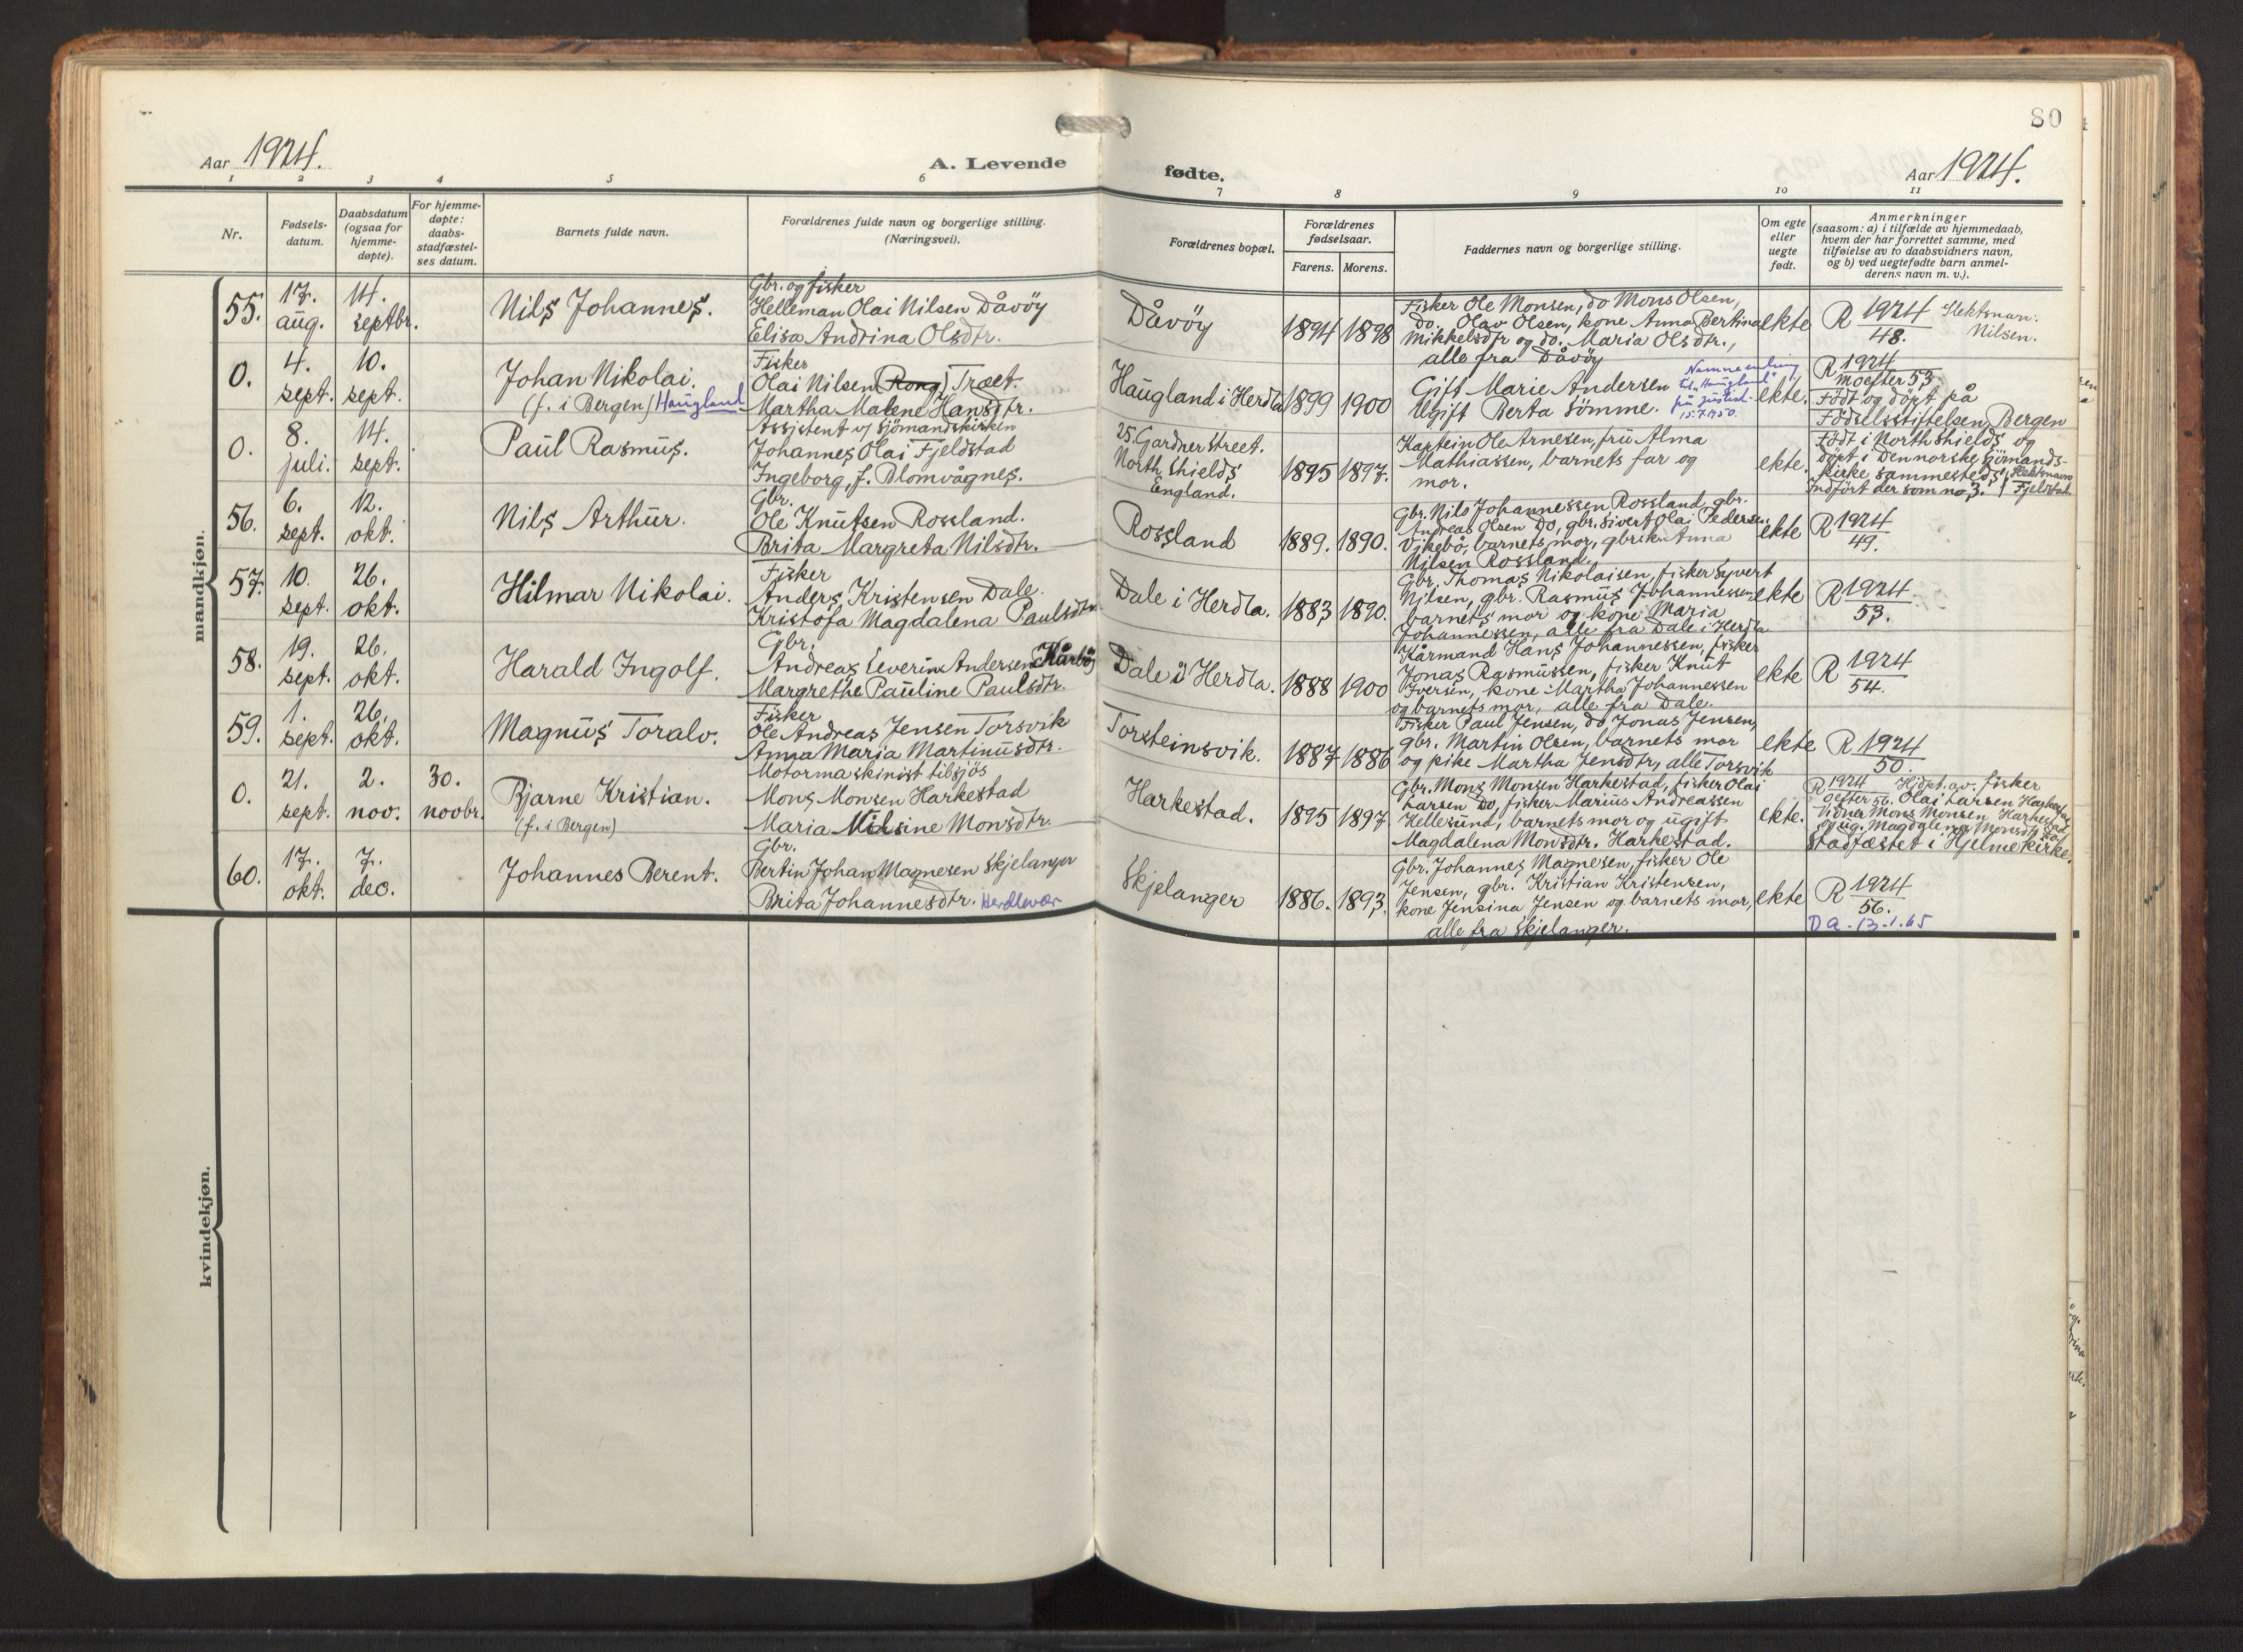 80
Aar 1924.
A. Levende
fødte.
Aar 1924.
1 2 3 4 5 6 7 8 9 10 11
Nr.
Fødsels-
datum.
Daabsdatum
(ogsaa for
hjemme-
døpte).
For hjemme-
døpte:
daabs-
stadfæstel-
ses datum.
Barnets fulde navn.
Forældrenes fulde navn og borgerlige stilling.
(Næringsvei).
Forældrenes bopæl.
Forældrenes
fødselsaar.
Farens. Morens.
Faddernes navn og borgerlige stilling.
Om egte
eller
uegte
født.
Anmerkninger
(saasom: a) i tilfælde av hjemmedaab,
hvem der har forrettet samme, med
tilføielse av to daabsvidners navn,
og b) ved uegtefødte barn anmel-
derens navn m. v.).
mandkjøn.
55.
17.
aug.
14.
septbr.
Nils Johannes.
Gbr. og fisker
Helleman Olai Nilsen Dåvöy
Elisa Andrina Olsdtr.
Dåvöy
1894 1898
Fisker Ole Monsen, do Mons Olsen,
do. Olav Olsen, kone Anna Bertina
Mikkelsdtr og do. Maria Olsdtr.,
alle fra Dåvöy
ekte
R 1924
48.
Slektsnavn:
Nilsen.
0.
4.
sept.
10.
sept.
Johan Nikolai.
(f. i Bergen) Haugland
Fisker
Olai Nilsen (Rong) Træet.
Martha Malene Hansdtr.
Haugland i Herdla
1899 1900
Gift Marie Andersen
Ugift Berta Sömme.
Namneendring
til "Haugland"
frå justisd.
15.7.1950.
ekte.
R 1924
moefter 53
Født og döpt på
Födselsstiftelsen, Bergen
0.
8.
juli.
14.
sept.
Paul Rasmus.
Assistent v/ sjömandskirken
Johannes Olai Fjeldstad
Ingeborg, f. Blomvågnes.
25. Gardner street.
North Shields
England.
1895 1897.
Kaptein Ole Arnesen, fru Alma
Mathiassen, barnets far og
mor.
ekte.
Födt i North Shields og
döpt i Den norske Sjömands-
kirke sammesteds.
Indfört der som no 3.
Slektsnavn
Fjeldstad.
56.
6.
sept.
12.
okt.
Nils Arthur.
Gbr.
Ole Knutsen Rossland.
Brita Margreta Nilsdtr.
Rossland
1889. 1890.
Gbr. Nils Johannessen Rossland, gbr.
Andreas Olsen do, gbr. Sivert Olai Pedersen
Vikebö, barnets mor, gbrikn Anna
Nilsen Rossland.
ekte
R 1924
49.
57.
10.
sept.
26.
okt.
Hilmar Nikolai.
Fisker
Anders Kristensen Dale.
Kristofa Magdalena Paulsdtr.
Dale i Herdla.
1883 1890.
Gbr. Thomas Nikolaisen, fisker Syvert
Nilsen, gbr. Rasmus Johannessen
barnets mor og kone Maria
Johannessen, alle fra Dale i Herdla
ekte
R 1924
53.
58.
19.
sept.
26.
okt.
Harald Ingolf.
Gbr.
Andreas Severin Andersen Kårbö
Margrethe Pauline Paulsdtr.
Dale i Herdla.
1888 1900
Kårmand Hans Johannessen, fisker
Jonas Rasmussen, fisker Knut
Iversen, kone Martha Johannessen
og barnets mor, alle fra Dale.
ekte
R 1924
54.
59.
1.
sept.
26.
okt.
Magnus Toralv.
Fisker
Ole Andreas Jensen Torsvik
Anna Maria Martinusdtr.
Torsteinsvik.
1887 1886
Fisker Paul Jensen, do Jonas Jensen,
gbr. Martin Olsen, barnets mor
og pike Martha Jensdtr, alle Torsvik
ekte
R 1924
50.
0.
21.
sept.
2.
nov.
30.
novbr.
Bjarne Kristian.
(f. i Bergen)
Motormaskinist tilsjös
Mons Monsen Harkestad
Maria Nilsine Monsdtr.
Harkestad.
1895 1897
Gbr. Mons Monsen Harkestad, fisker Olai
Larsen do, fisker Marius Andreassen
Hellesund, barnets mor og ugift
Magdalena Monsdtr. Harkestad.
ekte.
R 1924 Hjdpt. av. fisker
oefter 56. Olai Larsen Harkestad
Vidner Mons Monsen Harkestad
og ug. Magdalena Monsdtr do.
Stadfæstet i Hjelme kirke.
60.
17.
okt.
7.
dec.
Johannes Berent.
Gbr.
Bertin Johan Magnesen Skjelanger
Brita Johannesdtr. Herdlevær
Skjelanger
1886. 1893.
Gbr. Johannes Magnesen, fisker Ole
Jensen, gbr. Kristian Kristensen,
kone Jensina Jensen og barnets mor,
alle fra Skjelanger.
ekte
R 1924
56.
DA. 13.1.65
kvindekjøn.